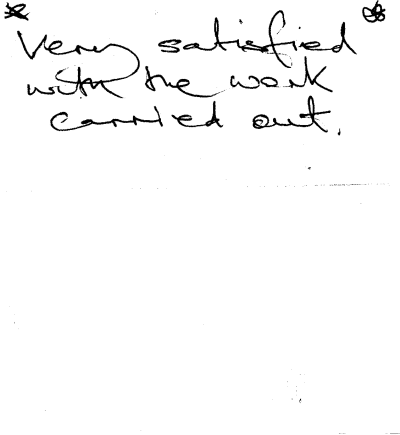 Very satisfied
with the work
carried out.